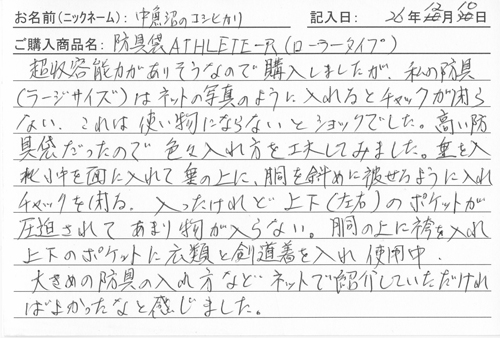 お名前(ニックネーム): 中魚沼のコシヒカリ 記入日: 26年 10月 10日
ご購入商品名: 防具袋ATHLETE-R(ローラータイプ)
超収容能力がありそうなので購入しましたが、私の防具
(ラージサイズ)はネットの写真のように入れるとチャックが閉ら
ない。これは使い物にならないとショックでした。高い防
具袋だったので色々入れ方を工夫してみました。垂を入
れ小手を面に入れて垂の上に、胴を斜めに被せるように入れ
チャックを閉る。入ったけれど上下(左右)のポケットが
圧迫されてあまり物が入らない。胴の上に袴を入れ
上下のポケットに衣類と剣道着を入れ使用中。
大きめの防具の入れ方などネットで紹介していただけれ
ばよかったなと感じました。